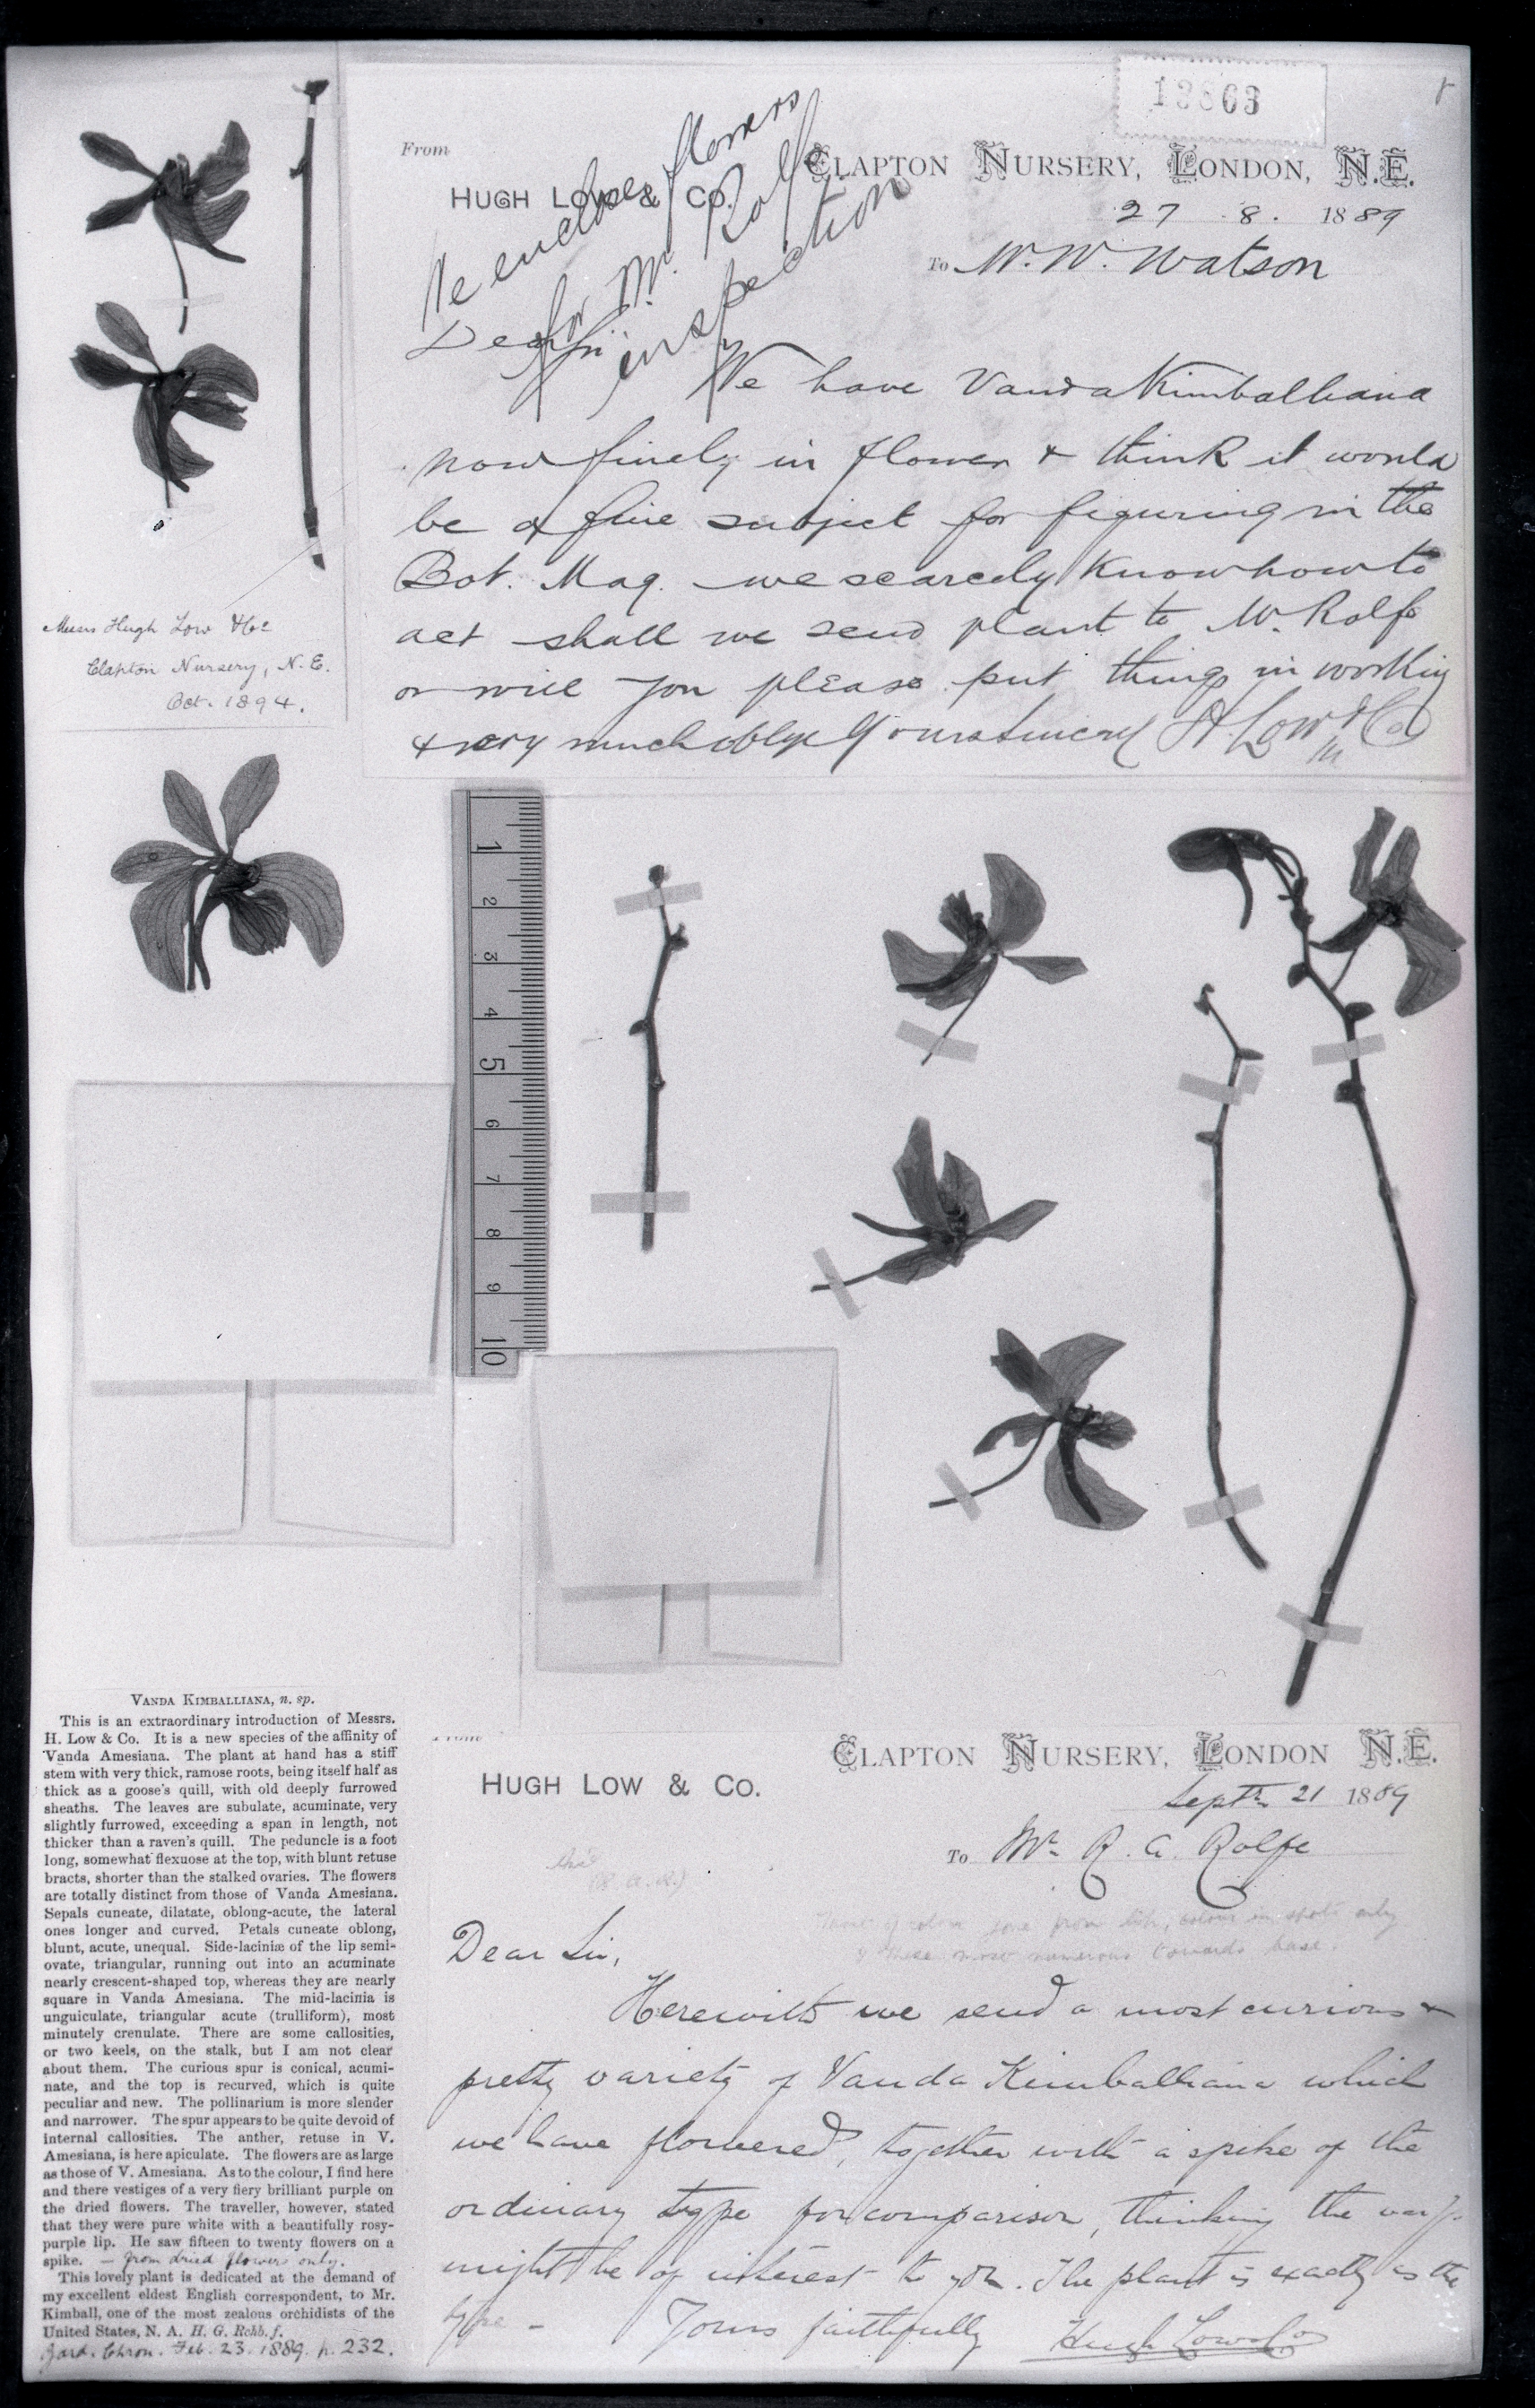 13863
From
HUGH LOW & CO.
CLAPTON NURSERY, LONDON, N.E.
27 . 8 . 1889
To W. W. Watson
We enclose flowers
for Mr. Rolfe
inspection
Dear Sir
We have Vanda Kimballiana
now finely in flower & think it would
be a fine subject for figuring in the
Bot. Mag. we scarcely know how to
act shall we send plant to Mr. Rolfe
or will you please put things in working
& very much oblige Yours sincerely H. Low & Co
Messrs Hugh Low & Co
Clapton Nursery, N. E.
Oct. 1894.
1
2
3
4
5
6
7
8
9
10
VANDA KIMBALLIANA, n. sp.
This is an extraordinary introduction of Messrs.
H. Low & Co. It is a new species of the affinity of
Vanda Amesiana. The plant at hand has a stiff
stem with very thick, ramose roots, being itself half as
thick as a goose's quill, with old deeply furrowed
sheaths. The leaves are subulate, acuminate, very
slightly furrowed, exceeding a span in length, not
thicker than a raven's quill. The peduncle is a foot
long, somewhat flexuose at the top, with blunt retuse
bracts, shorter than the stalked ovaries. The flowers
are totally distinct from those of Vanda Amesiana.
Sepals cuneate, dilatate, oblong-acute, the lateral
ones longer and curved. Petals cuneate oblong,
blunt, acute, unequal. Side-laciniæ of the lip semi-
ovate, triangular, running out into an acuminate
nearly crescent-shaped top, whereas they are nearly
square in Vanda Amesiana. The mid-lacinia is
unguiculate, triangular acute (trulliform), most
minutely crenulate. There are some callosities,
or two keels, on the stalk, but I am not clear
about them. The curious spur is conical, acumi-
nate, and the top is recurved, which is quite
peculiar and new. The pollinarium is more slender
and narrower. The spur appears to be quite devoid of
internal callosities. The anther, retuse in V.
Amesiana, is here apiculate. The flowers are as large
as those of V. Amesiana. As to the colour, I find here
and there vestiges of a very fiery brilliant purple on
the dried flowers. The traveller, however, stated
that they were pure white with a beautifully rosy-
purple lip. He saw fifteen to twenty flowers on a
spike. — from dried flowers only.
This lovely plant is dedicated at the demand of
my excellent eldest English correspondent, to Mr.
Kimball, one of the most zealous orchidists of the
United States, N. A. H. G. Rchb. f.
Gard. Chron. Feb. 23. 1889. p. 232.
From
HUGH LOW & CO.
CLAPTON NURSERY, LONDON N.E.
Septr 21 1889
To Mr. R. A. Rolfe
(R. A. R.)
colour gone from lip, colour in spots only
& these most numerous towards base.
Dear Sir,
Herewith we send a most curious &
pretty variety of Vanda Kimballiana which
we have flowered, together with a spike of the
ordinary type for comparison, thinking the vary.
might be of interest to you. The plant is exactly as the
type –
Yours faithfully Hugh Low & Co